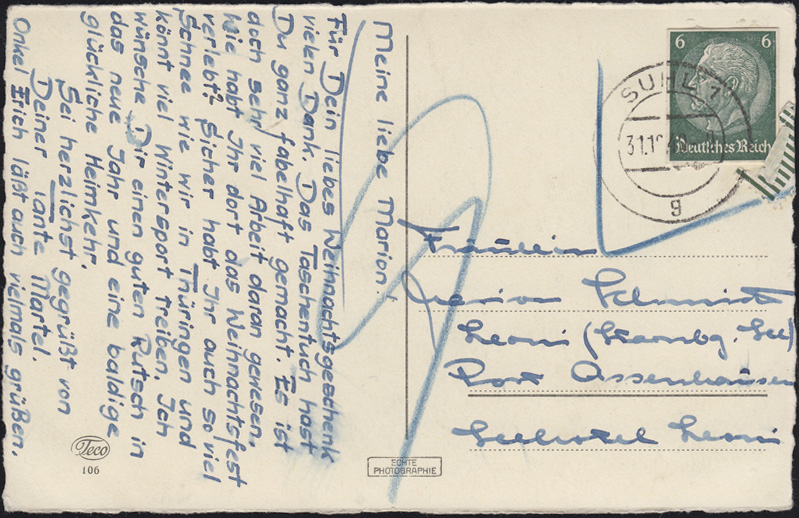 Meine liebe Marion!
Für Dein liebes Weihnachtsgeschenk
vielen Dank. Das Taschentuch hast
Du ganz fabelhaft gemacht. Es ist
doch sehr viel Arbeit daran gewesen.
Wie habt Ihr dort das Weihnachtsfest
verlebt? Sicher habt Ihr auch so viel
Schnee wie wir in Thüringen und
könnt viel Wintersport treiben. Ich
wünsche Dir einen guten Rutsch in
das neue Jahr und eine baldige
glückliche Heimkehr.
Sei herzlichst gegrüßt von
Deiner Tante Martel.
Onkel Erich läßt auch vielmals grüßen.
Teco
106
ECHTE
PHOTOGRAPHIE
6 6
Deutsches Reich
SUHL 1
31.12.
g
Fräulein
Marion Schmidt
Leoni (Starnbg. See)
Post Assenhausen
Seehotel Leoni